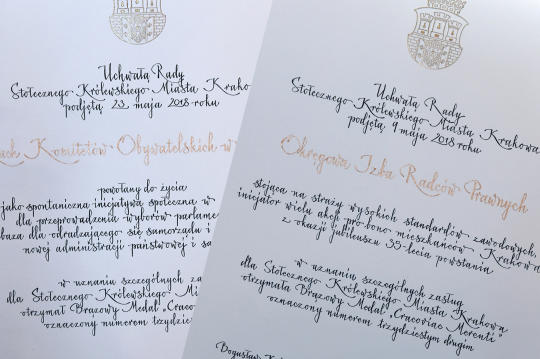 Uchwałą Rady
Stołecznego Królewskiego Miasta Krako
podjętą 23 maja 2018 roku
uch Komitetów Obywatelskich w
powołany do życia
jako spontaniczna inicjatywa społeczna w
dla przeprowadzenia wyborów parlame
baza dla odradzającego się samorządu i
nowej administracji państwowej i sa
w uznaniu szczególnych zas
dla Stołecznego Królewskiego Mi
otrzymał Brązowy Medal „Cracoviae
oznaczony numerem trzydzies
Uchwałą Rady
Stołecznego Królewskiego Miasta Krakowa
podjętą 9 maja 2018 roku
Okręgowa Izba Radców Prawnych
stojąca na straży wysokich standardów zawodowych,
inicjator wielu akcji pro bono mieszkańców Krakowa
z okazji jubileuszu 35-lecia powstania
w uznaniu szczególnych zasług
dla Stołecznego Królewskiego Miasta Krakowa
otrzymała Brązowy Medal „Cracoviae Merenti”
oznaczony numerem trzydziestym drugim
Bogusław K